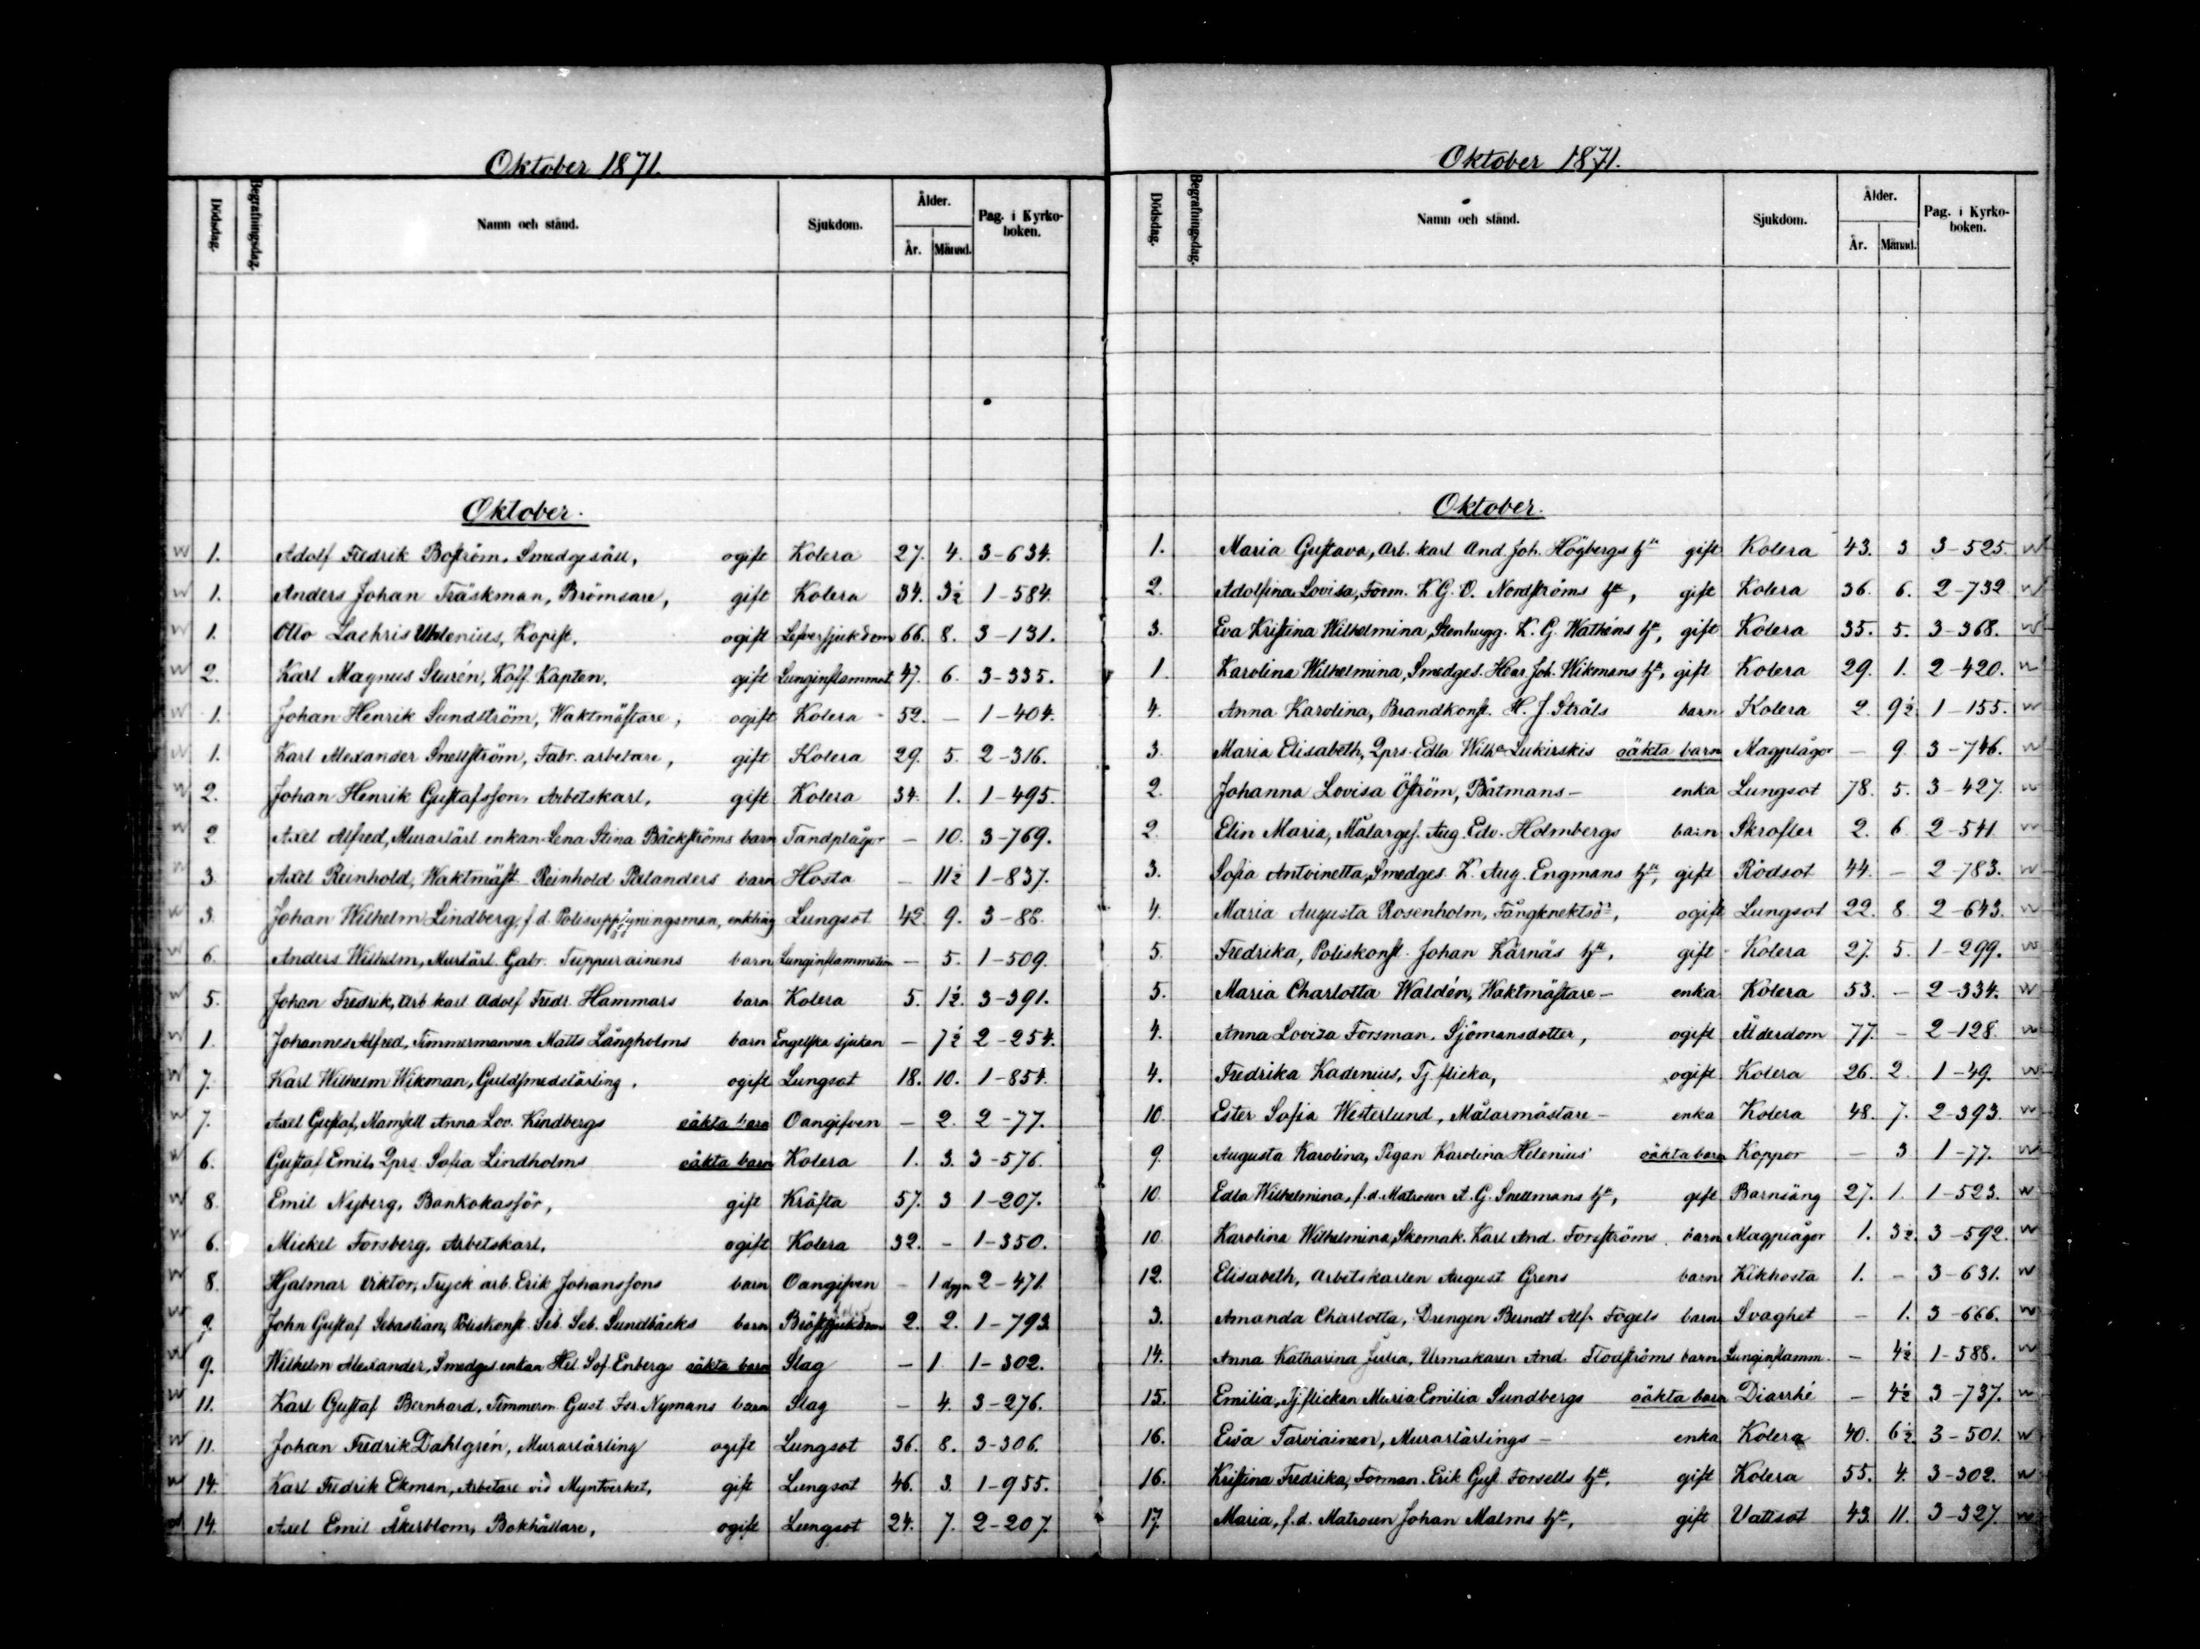 Oktober 1871.
Dödsdag. Begrafningsdag. Namn och stånd. Sjukdom. Ålder. År. Månad. Pag. i Kyrko-boken.
Oktober.
1. Adolf Fredrik Boström, Smedgesäll, ogift Kolera 27. 4. 3-634.
1. Anders Johan Träskman, Brömsare, gift Kolera 34. 3½ 1-584.
1. Otto Uhlenius, Kopist, ogift Lefversjukdom 66. 8. 3-131.
2. Karl Magnus Sturén, Koff. Kapten, gift Lunginflammat. 47. 6. 3-335.
1. Johan Henrik Sundström, Waktmästare, ogift Kolera 52. — 1-404.
1. Karl Alexander Snellström, Fabr. arbetare, gift Kolera 29. 5. 2-316.
2. Johan Henrik Gustafsson, Arbetskarl, gift Kolera 34. 1. 1-495.
2 Axel Alfred, Murarlärl. enkan Lena Stina Bäckströms barn Tandplågor — 10. 3-769.
3. Axel Reinhold, Waktmäst. Reinhold Palanders barn Hosta — 11½ 1-837.
3. Johan Wilhelm Lindberg, f.d. Polisuppsyningsman, enkling Lungsot 42. 9. 3-88.
6. Anders Wilhelm, Murlärl. Gabr. Tuppurainens barn Lunginflammation — 5. 1-509.
5. Johan Fredrik, Arb. karl Adolf Fredr. Hammars barn Kolera 5. 1½. 3-391.
1. Johannes Alfred, Timmermannen Matts Långholms barn Engelska sjukan — 7½ 2-254.
7. Karl Wilhelm Wikman, Guldsmedslärling, ogift Lungsot 18. 10. 1-854.
7. Axel Gustaf, Mamsell Anna Lov. Kindbergs oäkta barn Oangifven — 2. 2-77.
6. Gustaf Emil, Qprs. Sofia Lindholms oäkta barn Kolera 1. 3. 3-576.
8. Emil Nyberg, Bankokassör, gift Kräfta 57. 3 1-207.
6. Mickel Forsberg, Arbetskarl, ogift Kolera 32. - 1-350.
8. Hjalmar Viktor, Tryck. arb. Erik Johanssons barn Oangifven — 1 dygn 2-471
9. John Gustaf Sebastian, Poliskonst. Seb. Seb. Sundbäcks barn Bröstsjukdom 2. 2. 1-793.
9. Wilhelm Alexander, Smedges. enkan Hel. Sof. Enbergs oäkta barn Slag — 1 1-302.
11. Karl Gustaf Bernhard, Timmerm. Gust. Isr. Nymans barn Slag — 4. 3-276.
11. Johan Fredrik Dahlgrén, Murarlärling ogift Lungsot 36. 8. 3-306.
14. Karl Fredrik Ekman, Arbetare vid Myntverket, gift Lungsot 46. 3. 1-955.
14. Axel Emil Åkerblom, Bokhållare, ogift Lungsot 24. 7. 2-207.
Oktober 1871.
Dödsdag. Begrafningsdag. Namn och stånd. Sjukdom. Ålder. År. Månad. Pag. i Kyrko-boken.
Oktober.
1. Maria Gustava, Arb. karl And. Joh. Högbergs h:u gift Kolera 43. 3 3-525.
2. Adolfina Lovisa, Form. K. G. O. Nordströms h:u, gift Kolera 36. 6. 2-732
3. Eva Kristina Wilhelmina, Stenhugg. K. G. Wathéns h:u, gift Kolera 35. 5. 3-368.
1. Karolina Wilhelmina, Smedges. Henr. Joh. Wikmans h:u, gift Kolera 29. 1. 2-420.
4. Anna Karolina, Brandkonst. H. J. Stråls barn Kolera 2. 9½ 1-155.
3. Maria Elisabeth, Qprs. Edla Wilh:a Lukirskis oäkta barn Magplågor — 9. 3-746.
2. Johanna Lovisa Öström, Båtmans- enka Lungsot 78. 5. 3-427.
2. Elin Maria, Målarges. Aug. Edv. Holmbergs barn Skrofler 2. 6 2-541
3. Sofia Antoinetta, Smedges. K. Aug. Engmans h:u, gift Rödsot 44. — 2-783.
4. Maria Augusta Rosenholm, Fångknektsd:r, ogift Lungsot 22. 8. 2-643.
5. Fredrika, Poliskonst. Johan Kärnäs h:u, gift Kolera 27. 5. 1-299.
5. Maria Charlotta Waldén, Waktmästare- enka Kolera 53. - 2-334.
4. Anna Lovisa Forsman, Sjömansdotter, ogift Ålderdom 77. - 2-128.
4. Fredrika Kadenius, Tj. flicka, ogift Kolera 26. 2. 1-49.
10. Ester Sofia Westerlund, Målarmästare- enka Kolera 48. 7. 2-393.
9. Augusta Karolina, Pigan Karolina Helenius' oäkta barn Koppor — 3 1-77.
10. Edla Wilhelmina, f.d. Matrosen A. G. Snellmans h:u, gift Barnsäng 27. 1. 1-523.
10. Karolina Wilhelmina, Skomak. Karl And. Forsströms barn Magplågor 1. 3½. 3-592.
12. Elisabeth, Arbetskarlen August Grens barn Kikhosta 1. - 3-631.
3. Amanda Charlotta, Drengen Berndt Alf. Fogels barn Svaghet — 1. 3-666.
14. Anna Katharina Julia, Urmakaren And. Flodströms barn Lunginflamm. — 4½ 1-588.
15. Emilia, Tj. flickan Maria Emilia Sundbergs oäkta barn Diarrhé — 4½ 3-737.
16. Eva Tarviainen, Murarlärlings- enka Kolera 40. 6½ 3-501.
16. Kristina Fredrika, Forman. Erik Gust. Forsells h:u, gift Kolera 55. 4. 3-302.
17. Maria, f.d. Matrosen Johan Malms h:u, gift Vattsot 43. 11. 3-327.